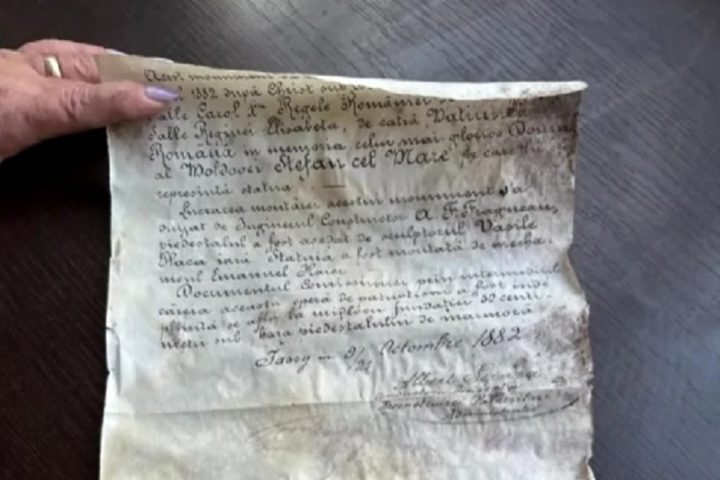 Acest monument
1882 după Christ sub
Sale Carol Iu Regele României
Sale Reginei Elisaveta, de catră Națiunea
Română in memoria celui mai glorios Domn
al Moldovei Stefan cel Mare pe care îl
represintă statua. —
Lucrarea montărei acestui monument s'a
dirijat de Inginerul Constructor A. F. Fragneau,
piedestalul a fost asedat de sculptorul Vasile
Placa iară Statuia a fost montată de mecha-
nicul Emanuel
Documentul Comissiunei prin intermediul
căreia aceasta operă de patriotism a fost inde-
plinită se află la mijlocul fundației 50 centi-
metri sub baza piedestalului de marmoră
Iassy in 9/21 Octombre 1882
Albert